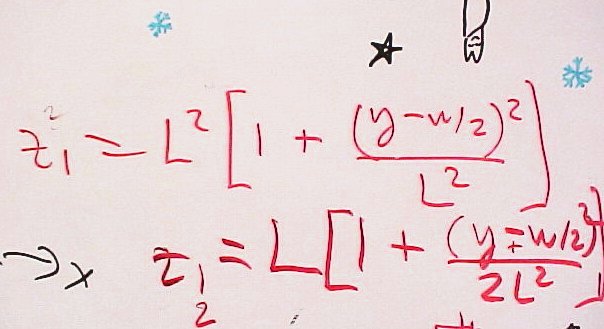 z₁² = L² [ 1 + (y - w/2)² / L² ]
→ x z₁,₂ = L [ 1 + (y ∓ w/2)² / 2L² ]